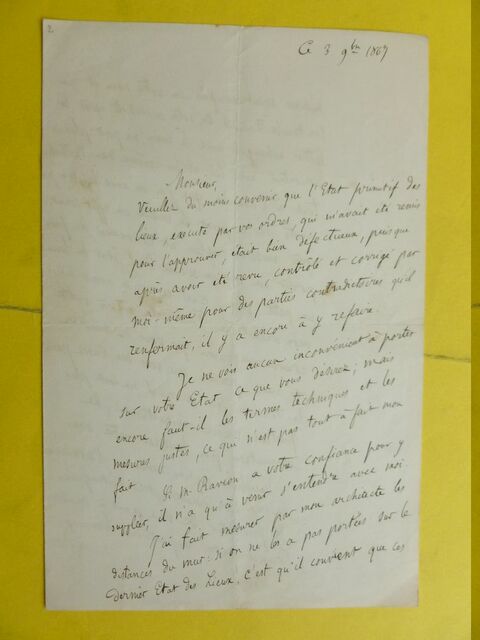 2
Ce 3 9bre 1867
Monsieur,
Veuillez du moins convenir que l'Etat primitif des
lieux, executé par vos ordres, qui m'avait été remis
pour l'approuver, était bien défectueux, puisque
après avoir été revu, contrôlé et corrigé par
moi-même pour des parties contradictoires qu'il
renfermait, il y a encore à y refaire.
Je ne vois aucun inconvénient à porter
sur votre Etat ce que vous désirez; mais
encore faut-il les termes techniques et les
mesures justes, ce qui n'est pas tout à fait mon
fait. Si Mr a votre confiance pour y
suppléer, il n'a qu'à venir s'entendre avec moi.
J'ai fait mesurer par mon architecte les
distances du mur. Si on ne les a pas portées sur le
dernier Etat des Lieux, c'est qu'il convient que ces